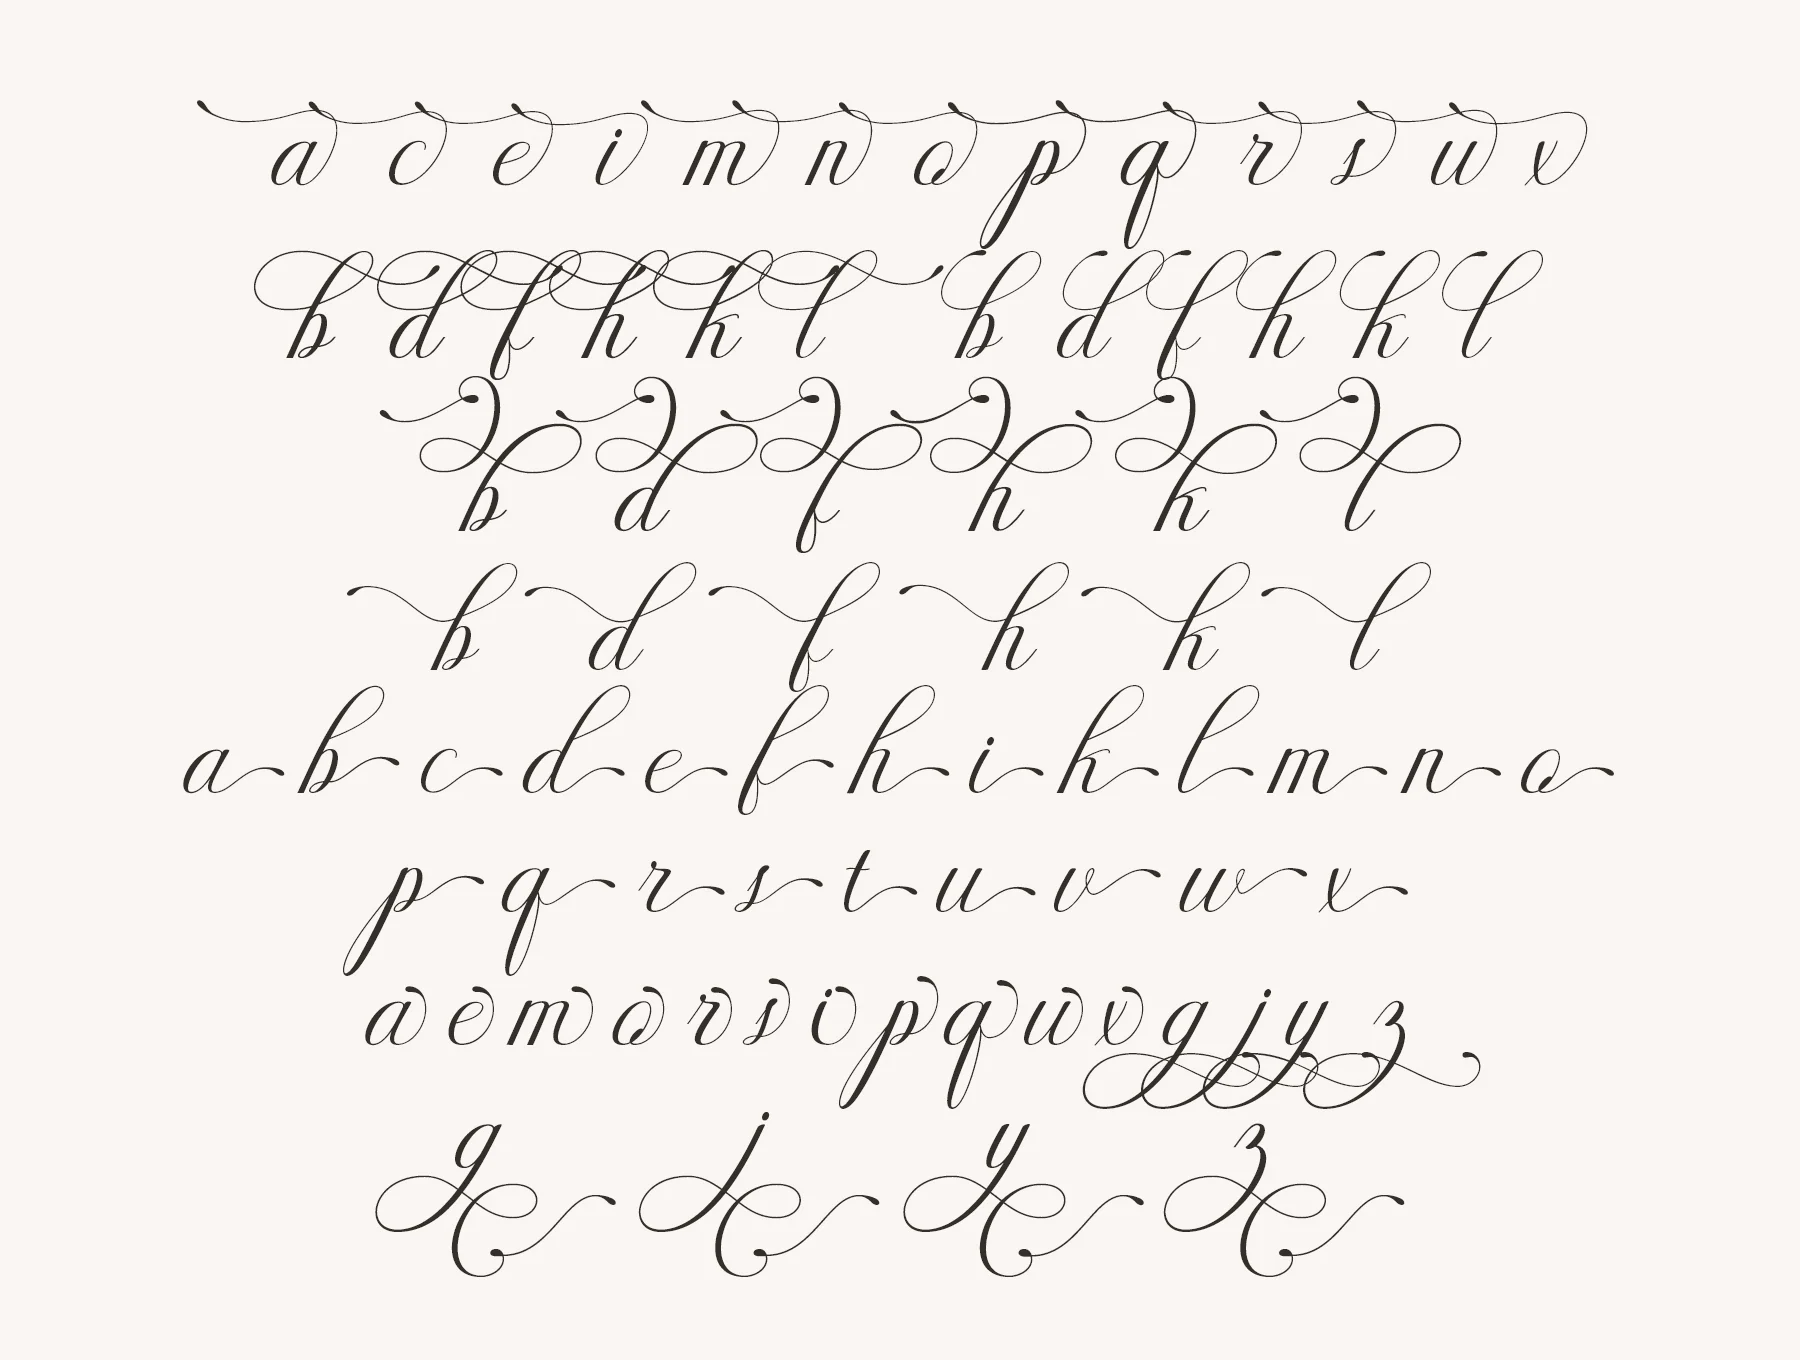 a c e i m n o p q r s u x
b d f h k l b d f h k l
b d f h k l
b d f h k l
a b c d e f h i k l m n o
p q r s t u v w x
a e m o r s i p q u x g j y z
g j y z